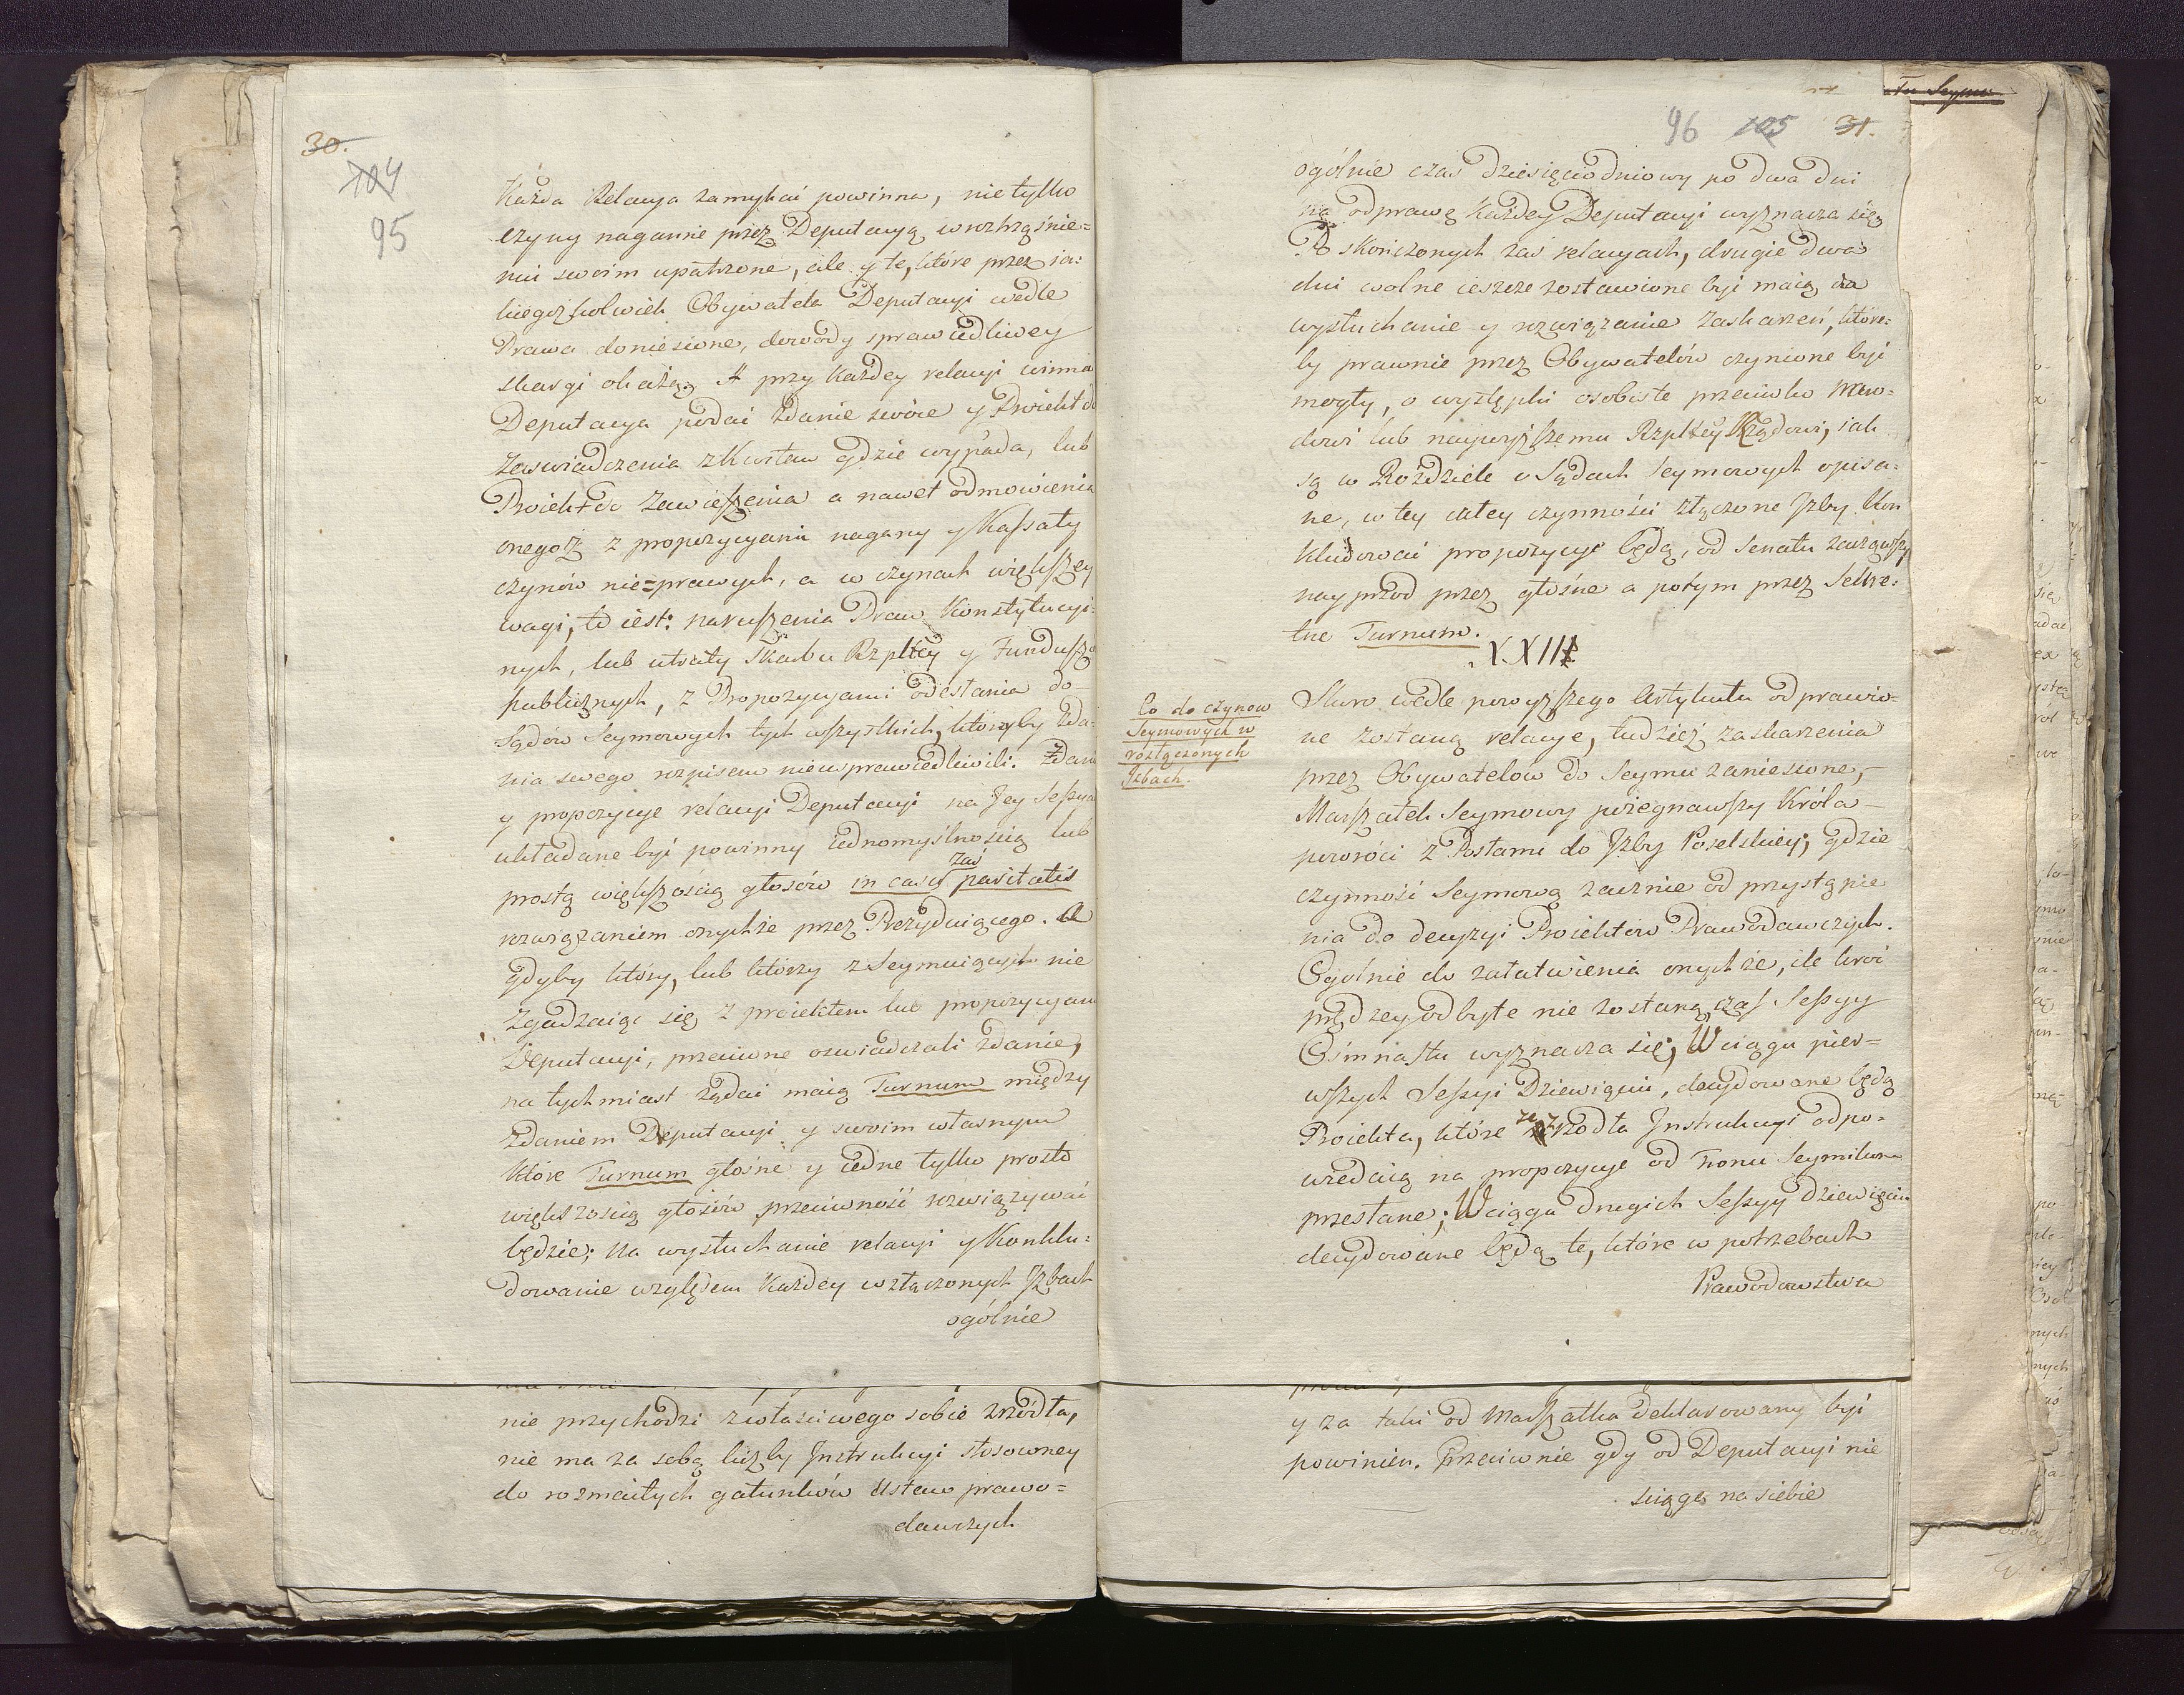 30.
104
95
Każda Relacya zamykać powinna, nie tylko
czyny naganne przez Deputacyą w roztrząśnie=
niu swoim upatrzone, ale y te, które przez ia=
kiegożkolwiek Obywatela Deputacyi wedle
Prawa doniesione, dowody sprawiedliwey
skargi okażą. A przy każdey relacyi winna
Deputacya podać zdanie swoie y Proiekt do
zaswiadczenia z Kwitem gdzie wypada, lub
Proiekt do zawieszenia a nawet odmowienia
onegoż z propozycyami nagany y Kassaty
czynów nie=prawych, a w czynach większey
wagi, to iest: naruszenia Praw Konstytucyi=
nych, lub utraty Skarbu Rzpltey y Fundusz
publicznych, z Propozycyami odesłania do
Sądów Seymowych tych wszystkich, którzyby zda=
nia swego rozpisem nieusprawiedliwili. Zdani
y propozycye relacyi Deputacyi na Jey Sessya
układane być powinny iednomyslnością lub
prostą większością głosów in casu zaś paritatis
rozwiązaniem onychże przez Prezyduiącego. A
gdyby który, lub którzy z Seymuiących nie
zgadzaiąc się z proiektem lub propozycyam
Deputacyi, przeciwne oswiadczali zdanie,
natychmiast żądać maią Turnum między
zdaniem Deputacyi y swoim własnym
które Turnum głośne y iedne tylko prosto
większością głosów przeciwność rozwiązywać
będzie; na wysłuchanie relacyi y Konklu=
dowanie względem każdey w złączonych Jzbach
ogólnie
nie przychodzi z właściwego sobie zrzódła,
nie ma za sobą liczby Jnstrukcyi stosowney
do rozmaitych gatunków Ustaw prawo=
dawczych
tu Seymu
96 105 31.
ogólnie czas dziesięciodniowy po dwa dni
na odprawę każdey Deputacyi wyznacza się.
Po skończonych zaś relacyach, drugie dwa
dni wolne ieszcze zostawione być maią na
wysłuchanie y rozwiązanie zaskarzeń, które=
by prawnie przez Obywatelów czynione być
mogły, o występki osobiste przeciwko Naro=
dowi lub naywyższemu Rzpltey Rządowi, iak
są w Rozdziele o Sądach Seymowych opisa=
ne, w tey całey czynności złączone Jzby Kon
kludować propozycye będą, od Senatu zacząwszy
nayprzod przez głośne a potym przez Sekre=
tne Turnum.
XXIII
Co do czynow
Seymowych w
rozłączonych
Jzbach.
Skoro wedle powyższego Artykułu odprawio=
ne zostaną relacye, tudzież zaskarzenia
przez Obywatelów do Seymu zaniesione,
Marszałek Seymowy pożegnawszy Króla
powróci z Posłami do Jzby Poselskiey; gdzie
czynność Seymową zacznie od przystąpie
nia do decyzyi Proiektow Prawodawczych.
Ogolnie do załatwienia onychże, ile kroć
prędzey odbyte nie zostaną, czas Sessyy
Ośmnastu wyznacza się; W ciągu pier=
wszych Sessyi Dziewięciu, decydowane będą
Proiekta, które ze zrzodła Jnstrukcyi odpo=
wiedaią na propozycye od Tronu Seymikom
przesłane; W ciągu drugich Sessyy dziewięciu
decydowane będą te, które w potrzebach
Prawodawstwa
y za taki od Marszałka deklarowany być
powinien. Przeciwnie gdy od Deputacyi nie
sciąga na siebie